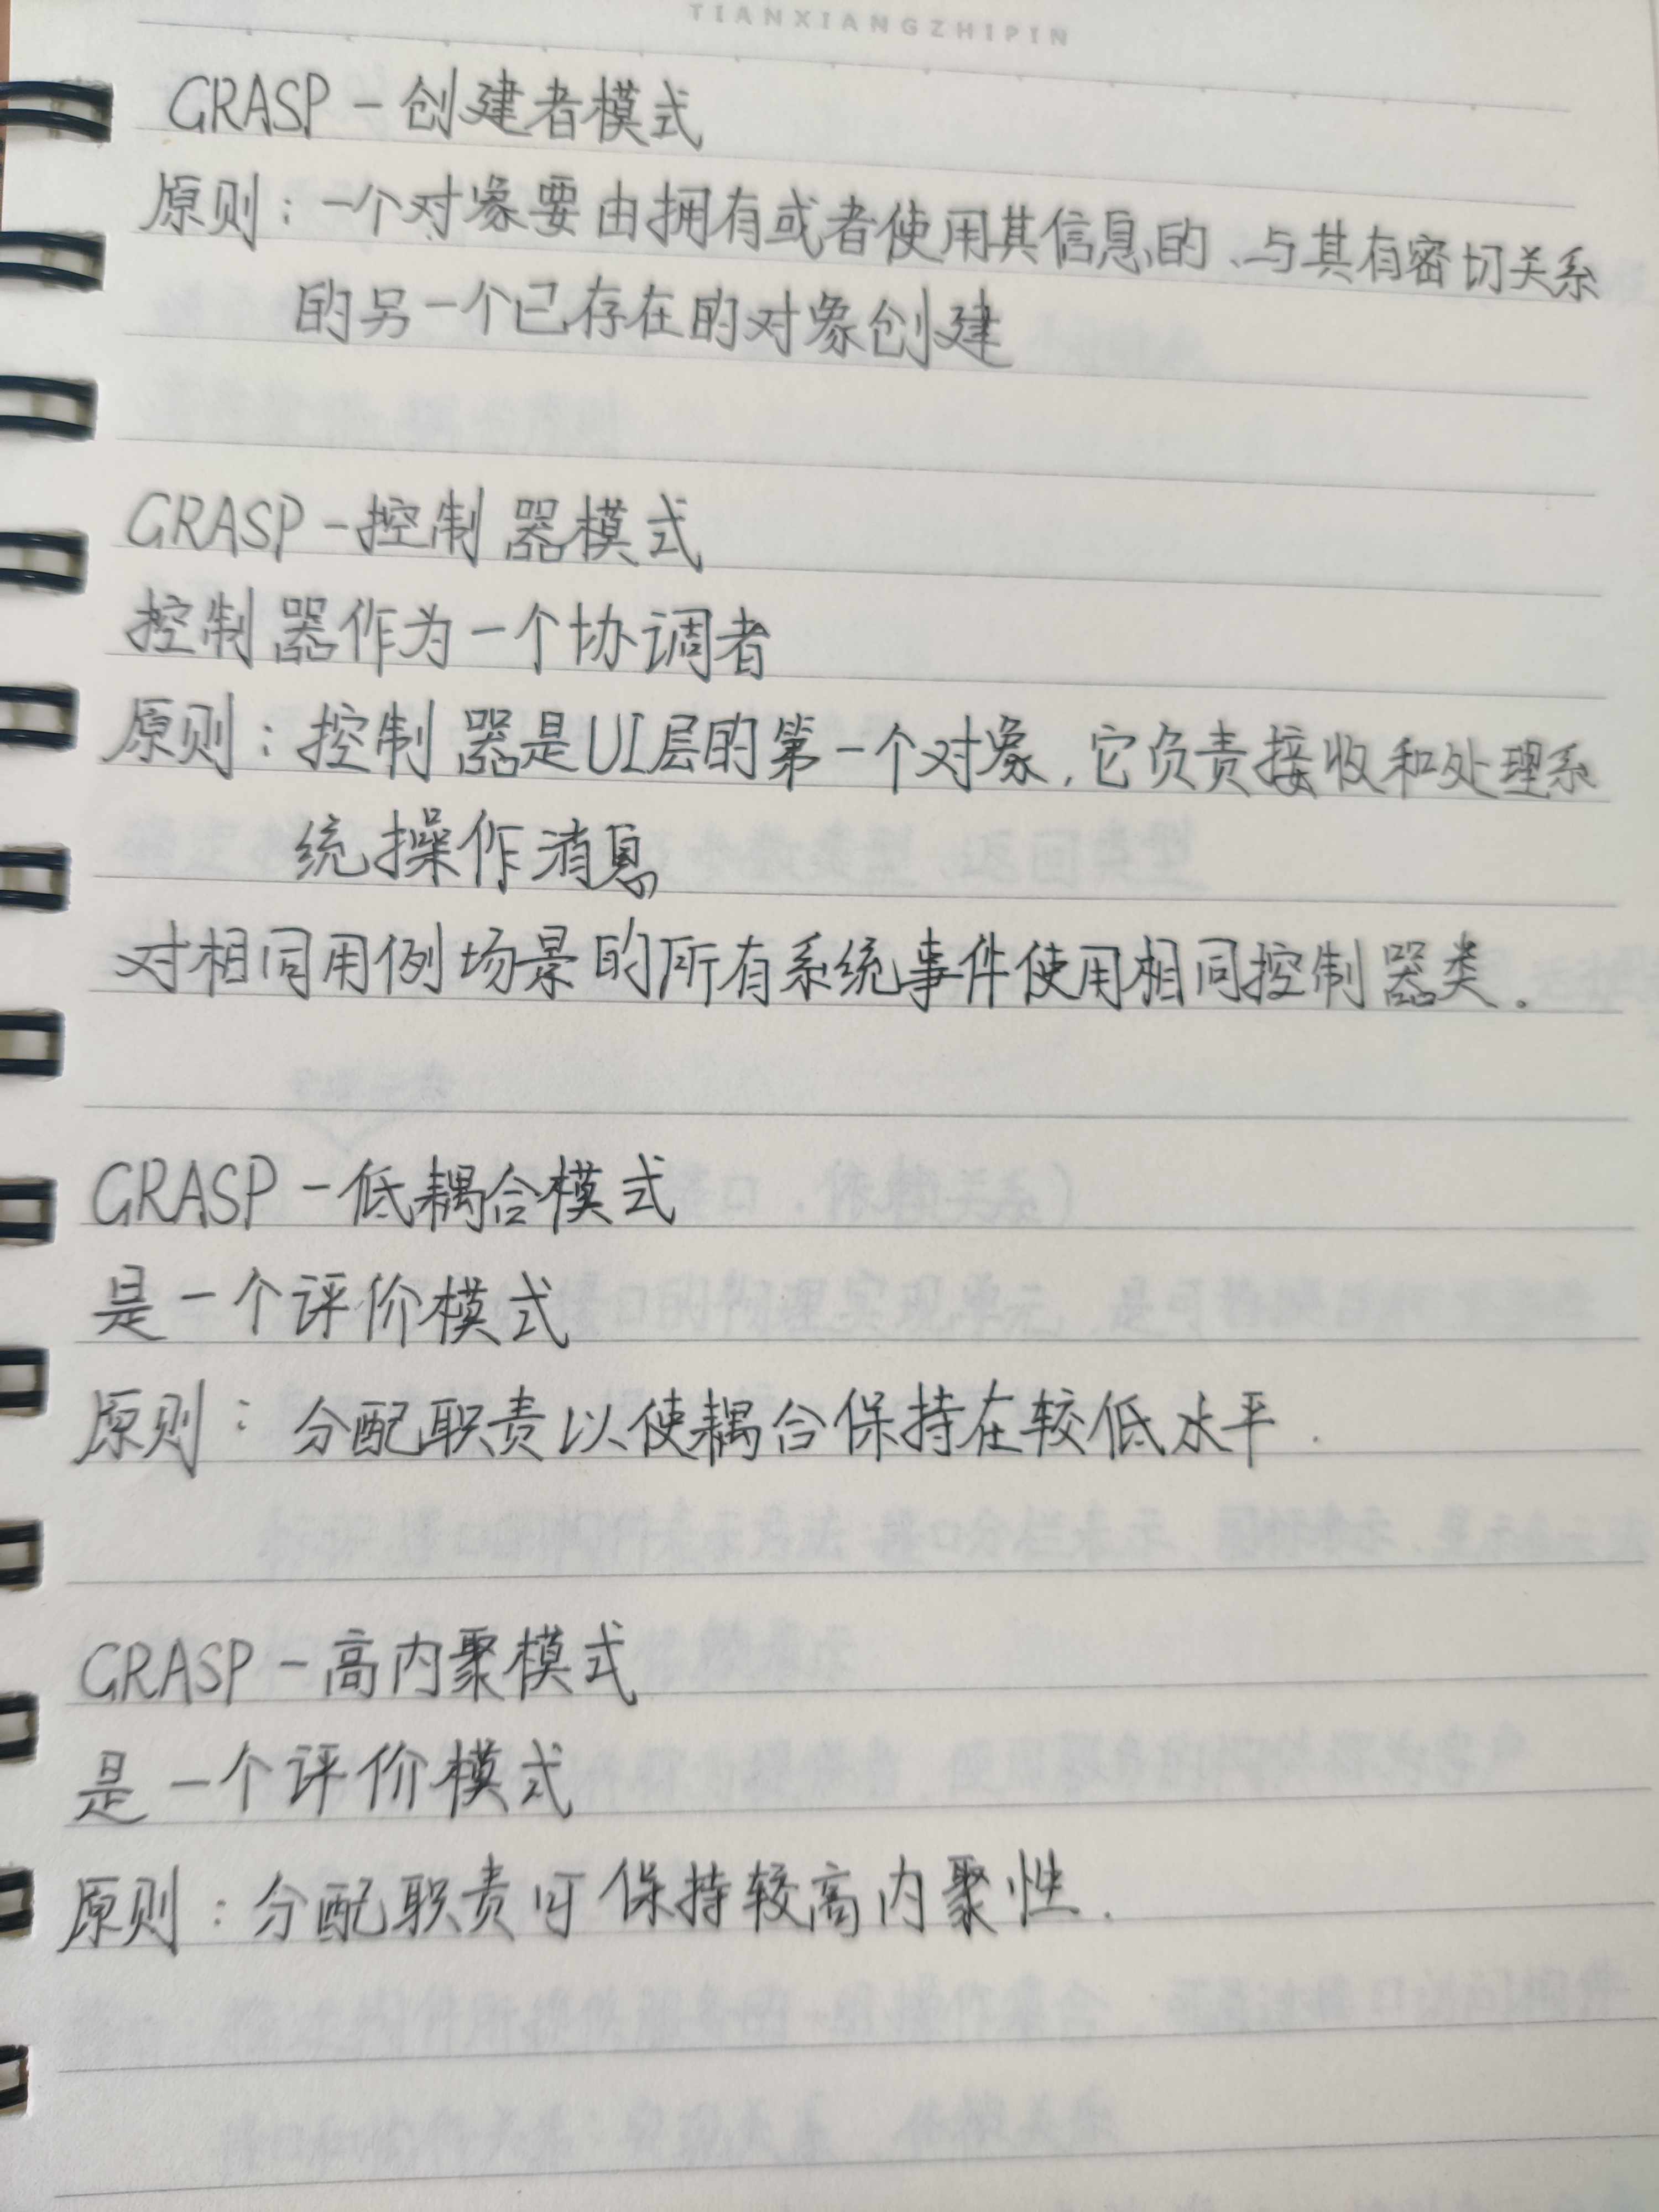 TIANXIANGZHIPIN
GRASP-创建者模式
原则：一个对象要由拥有或者使用其信息的、与其有密切关系
的另一个已存在的对象创建
GRASP-控制器模式
控制器作为一个协调者
原则：控制器是UI层的第一个对象，它负责接收和处理系
统操作消息
对相同用例场景的所有系统事件使用相同控制器类。
GRASP-低耦合模式
是一个评价模式
原则：分配职责以使耦合保持在较低水平.
GRASP-高内聚模式
是一个评价模式
原则：分配职责可保持较高内聚性.